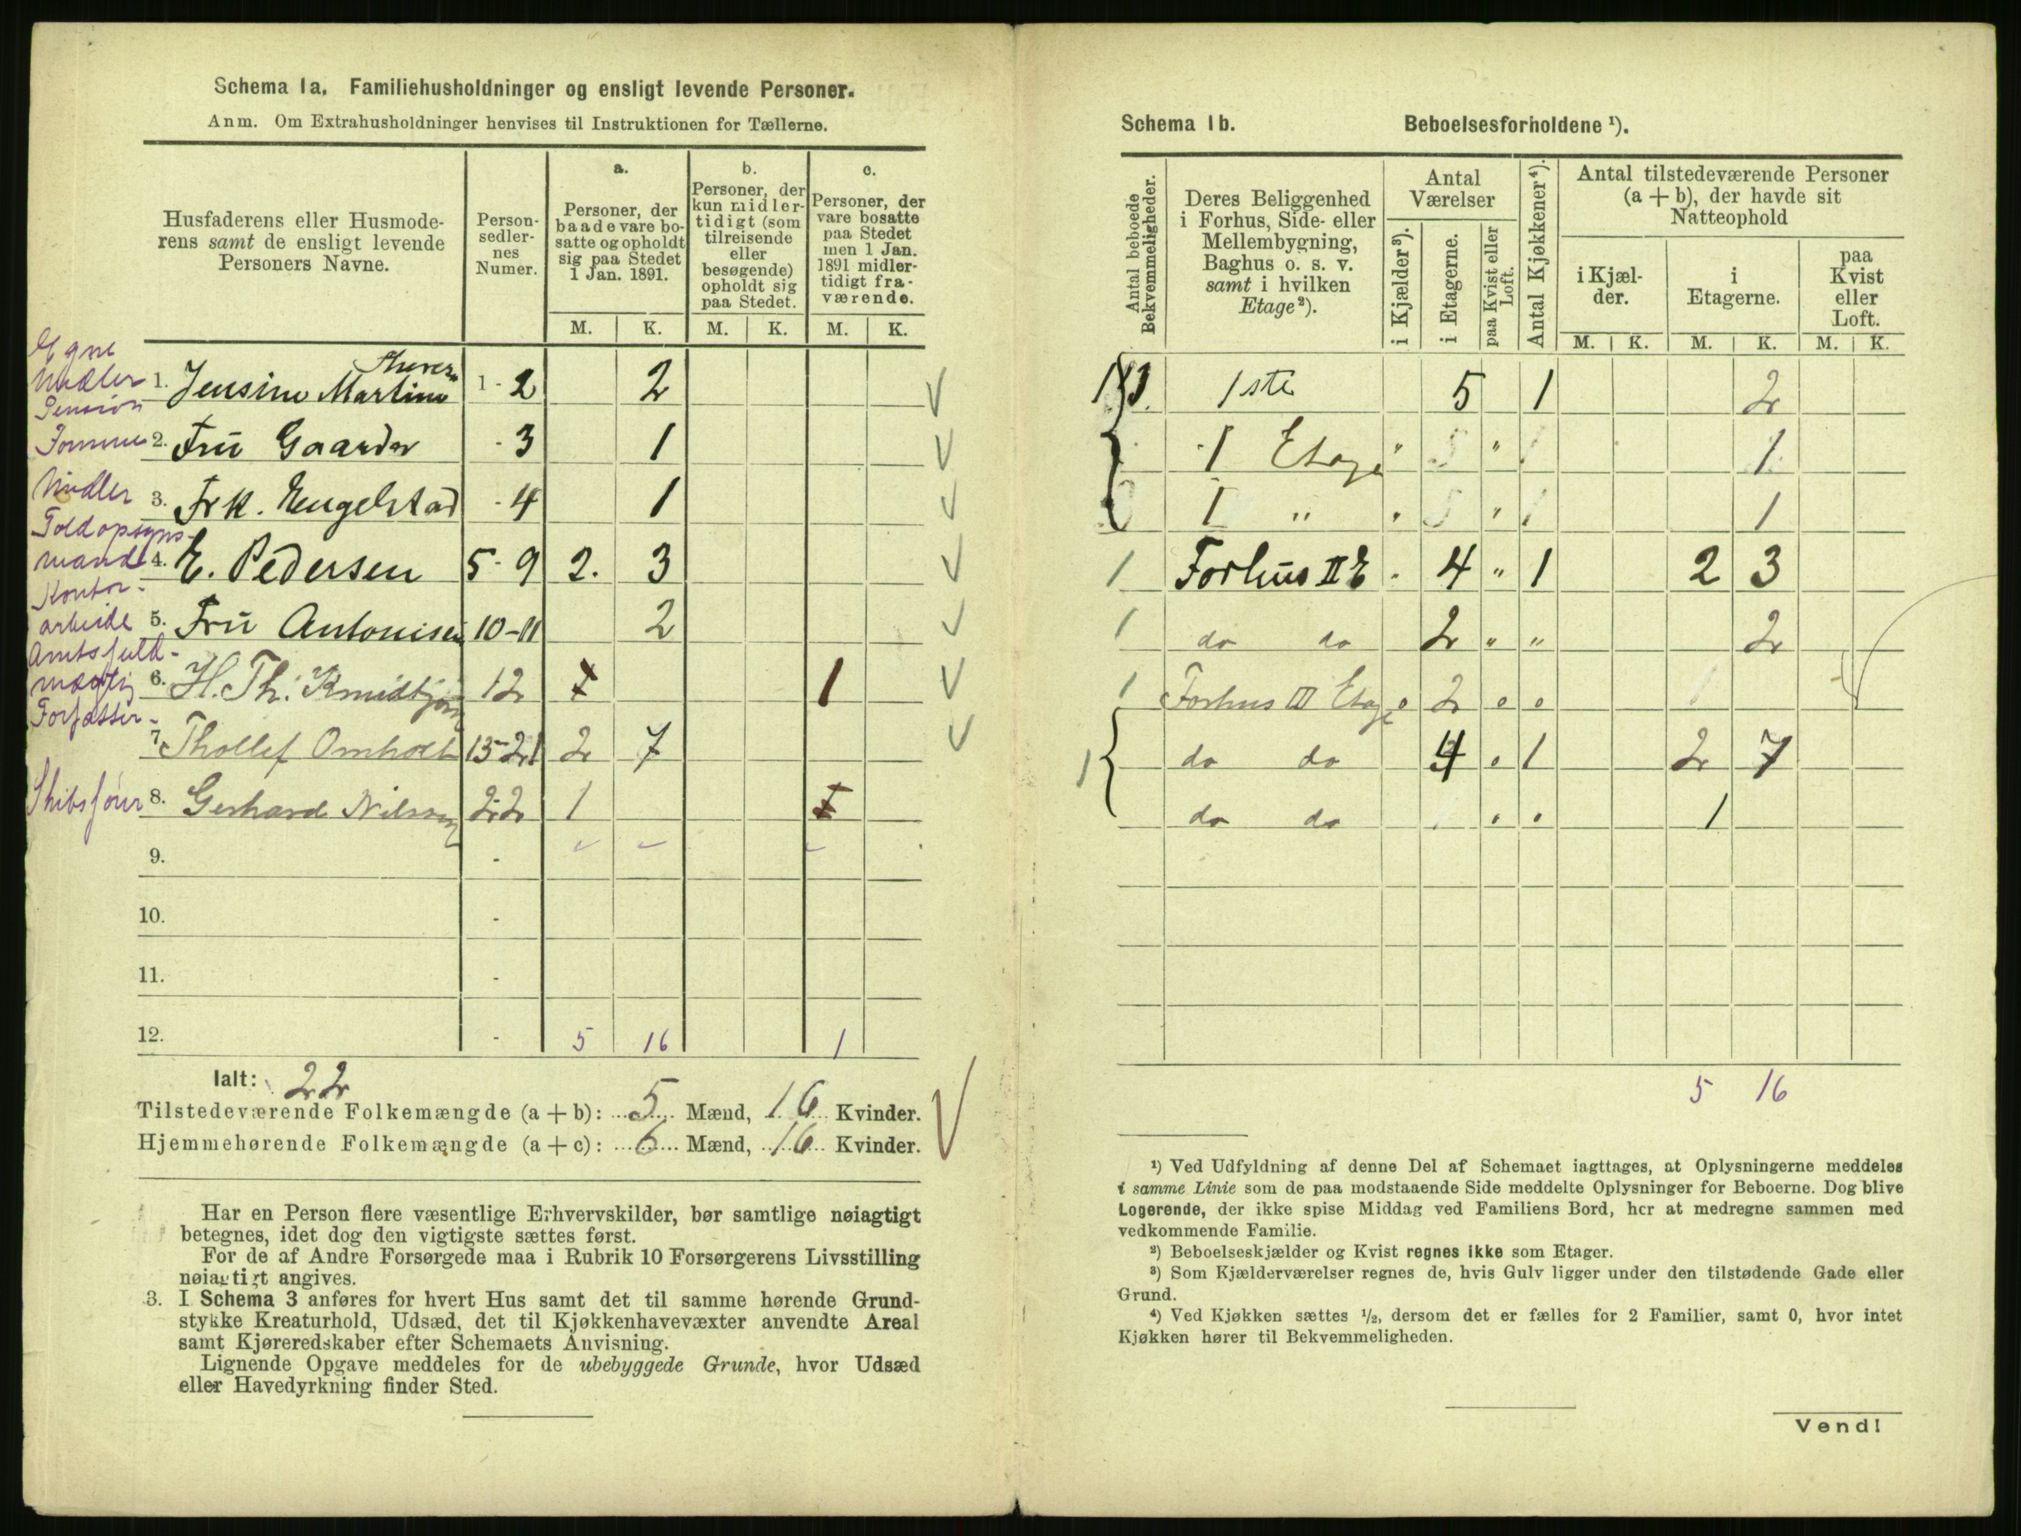 Schema 1a. Familiehusholdninger og ensligt levende Personer.
Anm. Om Extrahusholdninger henvises til Instruktionen for Tællerne.
Husfaderens eller Husmode-
rens samt de ensligt levende
Personers Navne.
Person-
sedler-
nes
Numer.
a.
Personer, der
baade vare bo-
satte og opholdt
sig paa Stedet
1 Jan. 1891.
b.
Personer, der
kun midler-
tidigt (som
tilreisende
eller
besøgende)
opholdt sig
paa Stedet.
c.
Personer, der
vare bosatte
paa Stedet
men 1 Jan.
1891 midler-
tidigt fra-
værende.
M. K. M. K. M. K.
Egne
Midler
Pension
1. Jensine Martine 1 - 2 2
2. Fru Gaarder - 3 1
Midler
3. Frk. Engelstad - 4 1
Toldopsyns-
mand
4. E. Pedersen 5 - 9 2. 3
Kontor-
arbeide
5. Fru Antonisen 10-11 2
Amtsfuld-
mægtig
6. H. Th. 12 1 1
Forfatter
7. Thollef Omholt 15-21 2 7
8. Gerhard Nilsen 22 1 1
9. -
10. -
11. -
12. - 5 16 1
Ialt: 22
Tilstedeværende Folkemængde (a + b): 5 Mænd, 16 Kvinder.
Hjemmehørende Folkemængde (a + c): 6 Mænd, 16 Kvinder.
Har en Person flere væsentlige Erhvervskilder, bør samtlige nøiagtigt
betegnes, idet dog den vigtigste sættes først.
For de af Andre Forsørgede maa i Rubrik 10 Forsørgerens Livsstilling
nøiagtigt angives.
3. I Schema 3 anføres for hvert Hus samt det til samme hørende Grund-
stykke Kreaturhold, Udsæd, det til Kjøkkenhavevæxter anvendte Areal
samt Kjøreredskaber efter Schemaets Anvisning.
Lignende Opgave meddeles for de ubebyggede Grunde, hvor Udsæd
eller Havedyrkning finder Sted.
Schema 1b. Beboelsesforholdene ¹).
Antal beboede
Bekvemmeligheder.
Deres Beliggenhed
i Forhus, Side- eller
Mellembygning,
Baghus o. s. v.
samt i hvilken
Etage²).
Antal
Værelser
i Kjælder³).
i Etagerne.
paa Kvist eller
Loft.
Antal Kjøkkener⁴).
Antal tilstedeværende Personer
(a + b), der havde sit
Natteophold
i Kjæl-
der.
i
Etagerne.
paa
Kvist
eller
Loft.
M. K. M. K. M. K.
1 1ste 5 1 2
1 Etage " 5 " 1 1
1 " " 5 " 1 1
1 Forhus II E " 4 " 1 2 3
1 do do 2 " " 2
1 Forhus III Etage 0 2 0 0 1
1 do do 4 0 1 2 7
do do 0 0 1
5 16
¹) Ved Udfyldning af denne Del af Schemaet iagttages, at Oplysningerne meddeles
i samme Linie som de paa modstaaende Side meddelte Oplysninger for Beboerne. Dog blive
Logerende, der ikke spise Middag ved Familiens Bord, her at medregne sammen med
vedkommende Familie.
²) Beboelseskjælder og Kvist regnes ikke som Etager.
³) Som Kjælderværelser regnes de, hvis Gulv ligger under den tilstødende Gade eller
Grund.
⁴) Ved Kjøkken sættes ½, dersom det er fælles for 2 Familier, samt 0, hvor intet
Kjøkken hører til Bekvemmeligheden.
Vend!